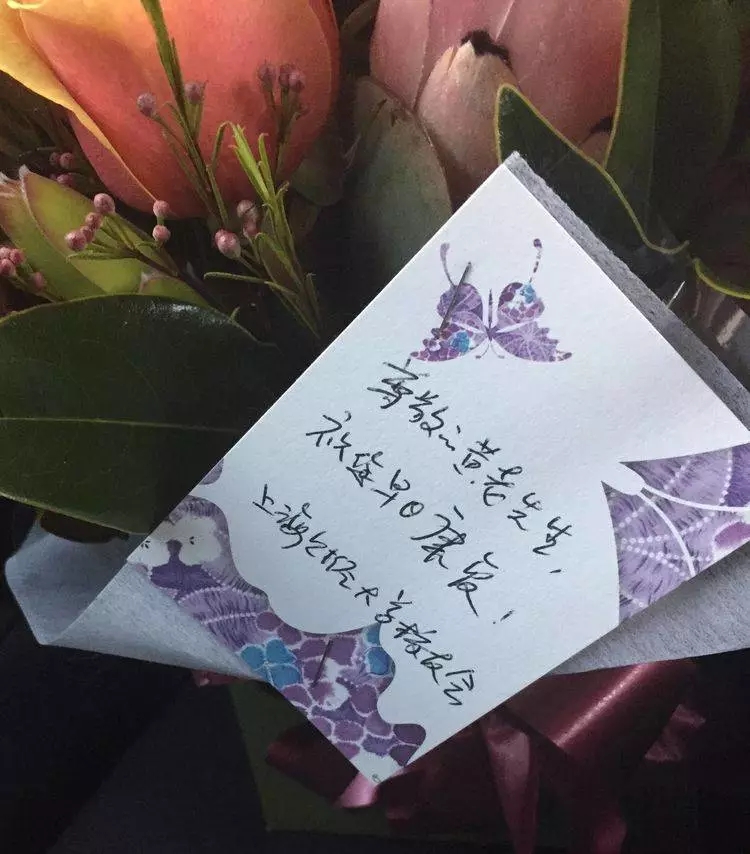 尊敬的黄老先生,
祝您早日康复!
上海财经大学校友会